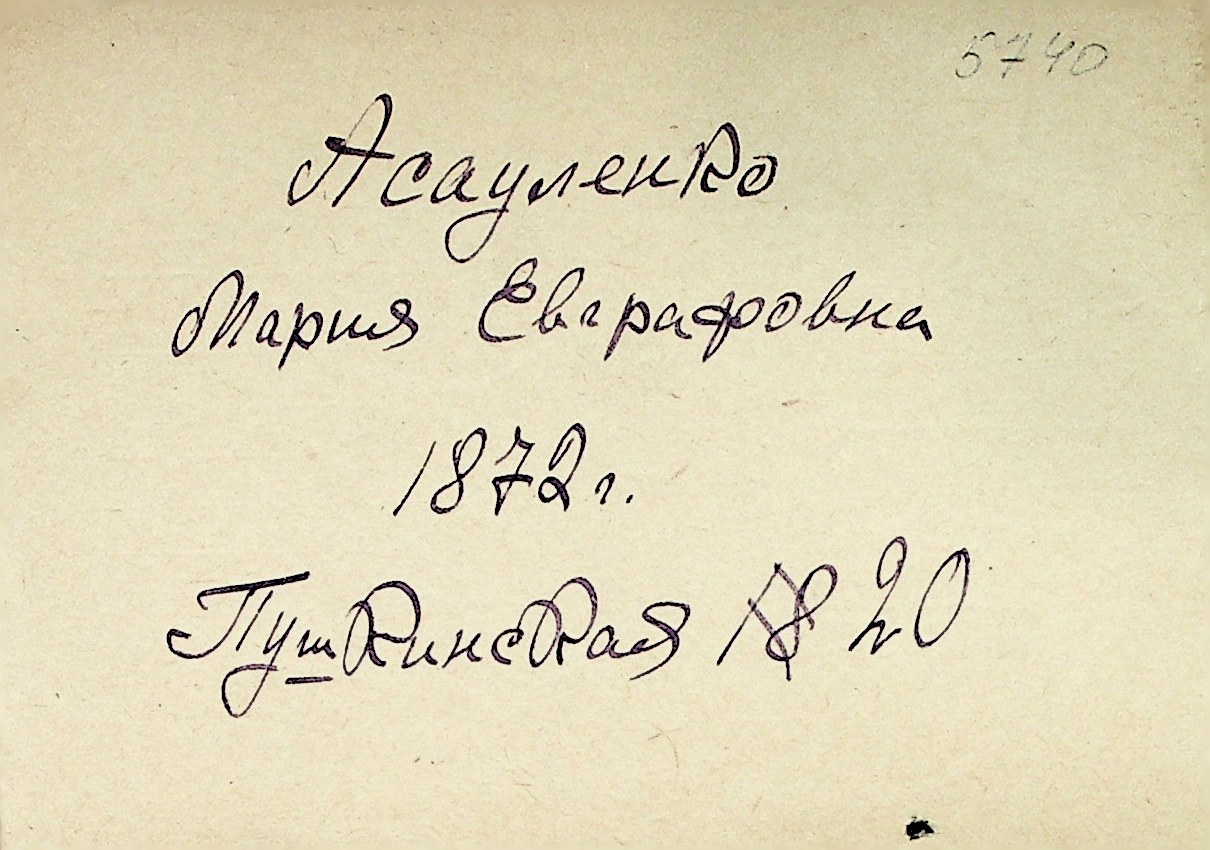 5740
Асауленко
Мария Евграфовна
1872г.
Пушкинская 18 20